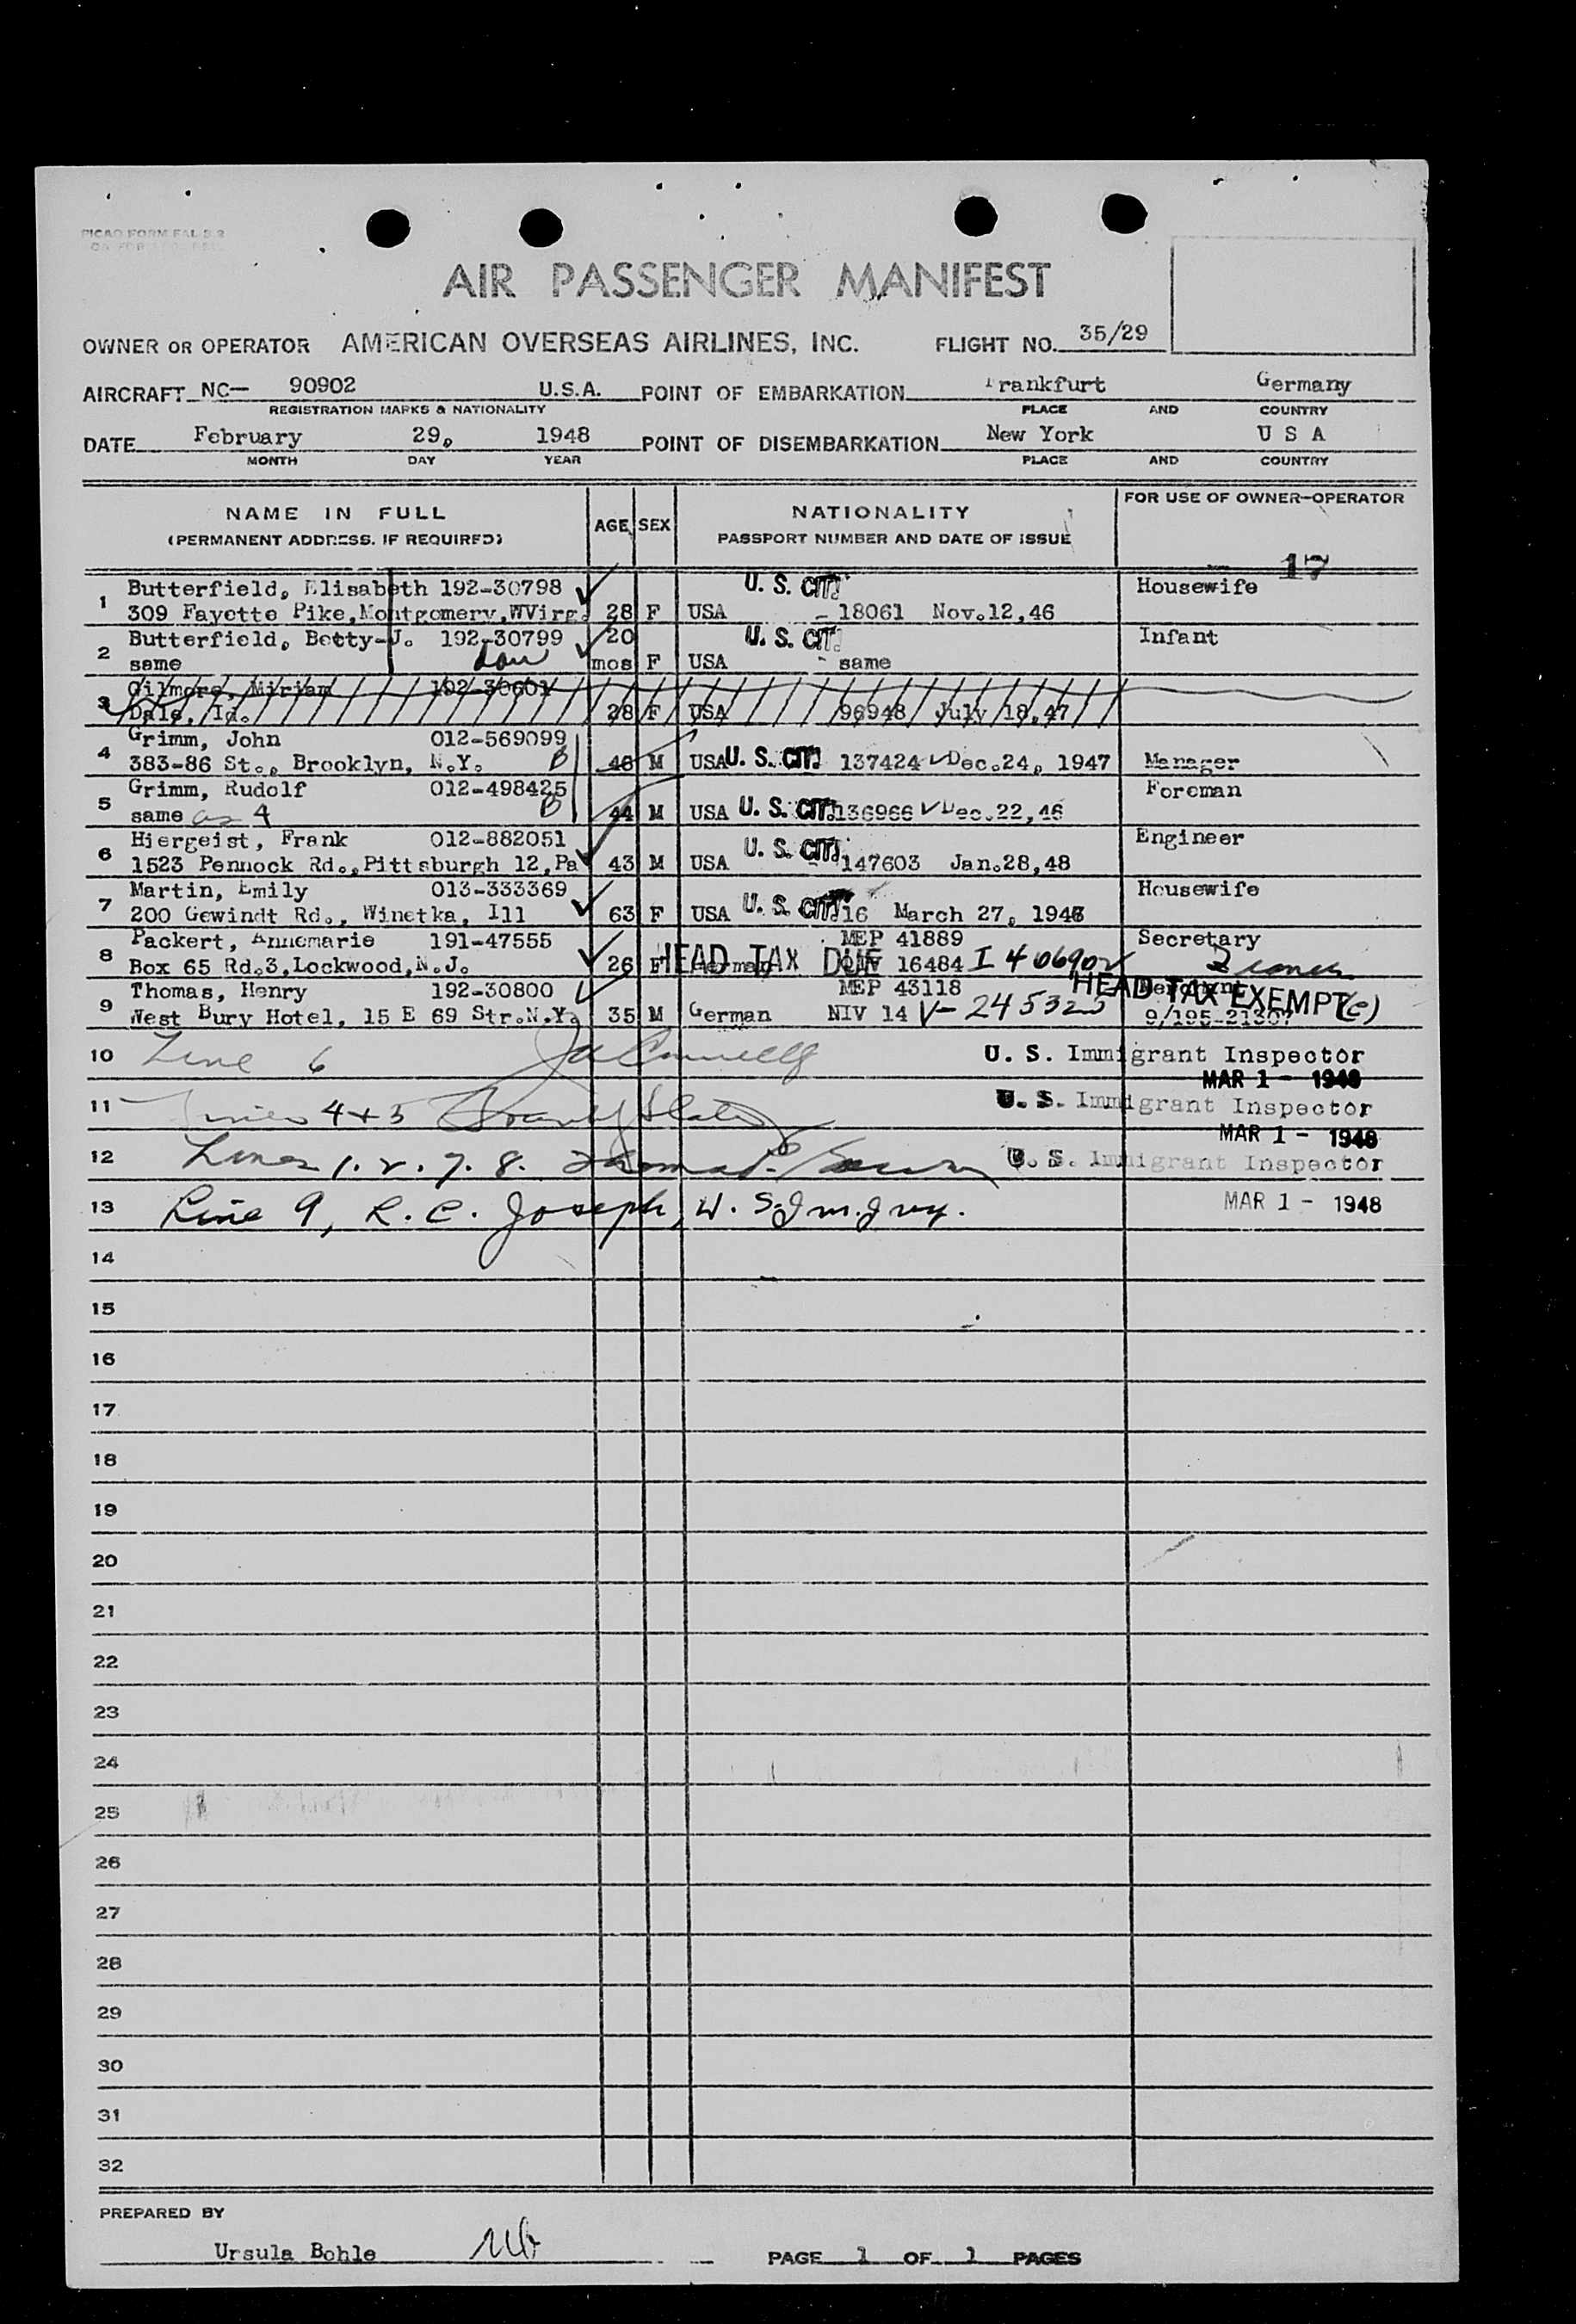 PICAO FORM FAL 3.3
AIR PASSENGER MANIFEST
OWNER OR OPERATOR AMERICAN OVERSEAS AIRLINES, INC. FLIGHT NO. 35/29
AIRCRAFT NC— 90902 U.S.A. POINT OF EMBARKATION Frankfurt Germany
REGISTRATION MARKS & NATIONALITY PLACE AND COUNTRY
DATE February 29, 1948 POINT OF DISEMBARKATION New York U S A
MONTH DAY YEAR PLACE AND COUNTRY
NAME IN FULL AGE SEX NATIONALITY FOR USE OF OWNER-OPERATOR
(PERMANENT ADDRESS. IF REQUIRED) PASSPORT NUMBER AND DATE OF ISSUE
17
1 Butterfield, Elisabeth 192-30798 U. S. CIT. Housewife
309 Fayette Pike,Montgomery,WVirg. 28 F USA - 18061 Nov.12,46
2 Butterfield, Betty-J. 192-30799 20 U. S. CIT. Infant
same mos F USA - same
3 Gilmore, Miriam 192-30601
Dale, Id. 28 F USA 96948 July 18,47
4 Grimm, John 012-569099
383-86 St., Brooklyn, N.Y. B 48 M USA U. S. CIT. 137424 Dec.24, 1947 Manager
5 Grimm, Rudolf 012-498425 Foreman
same as 4 B 44 M USA U. S. CIT. 136966 Dec.22,46
6 Hiergeist, Frank 012-882051 U. S. CIT. Engineer
1523 Pennock Rd.,Pittsburgh 12,Pa 43 M USA 147603 Jan.28,48
7 Martin, Emily 013-333369 Housewife
200 Gewindt Rd., Winetka, Ill 63 F USA U. S. CIT. 16 March 27, 1946
8 Packert, Annemarie 191-47555 MEP 41889 Secretary
Box 65 Rd.3,Lockwood,N.J. 26 F German HEAD TAX DUE QIV 16484 I 406902
9 Thomas, Henry 192-30800 MEP 43118 Merchant HEAD TAX EXEMPT (c)
West Bury Hotel, 15 E 69 Str.N.Y. 35 M German NIV 14 V-245325 9/195-21307
10 Line 6 U. S. Immigrant Inspector
MAR 1 - 1948
11 Lines 4+5 U. S. Immigrant Inspector
MAR 1 - 1948
12 Lines 1. 2. 7. 8. U. S. Immigrant Inspector
13 Line 9, R. C. Joseph, MAR 1 - 1948
14
15
16
17
18
19
20
21
22
23
24
25
26
27
28
29
30
31
32
PREPARED BY
Ursula Bohle PAGE 1 OF 1 PAGES